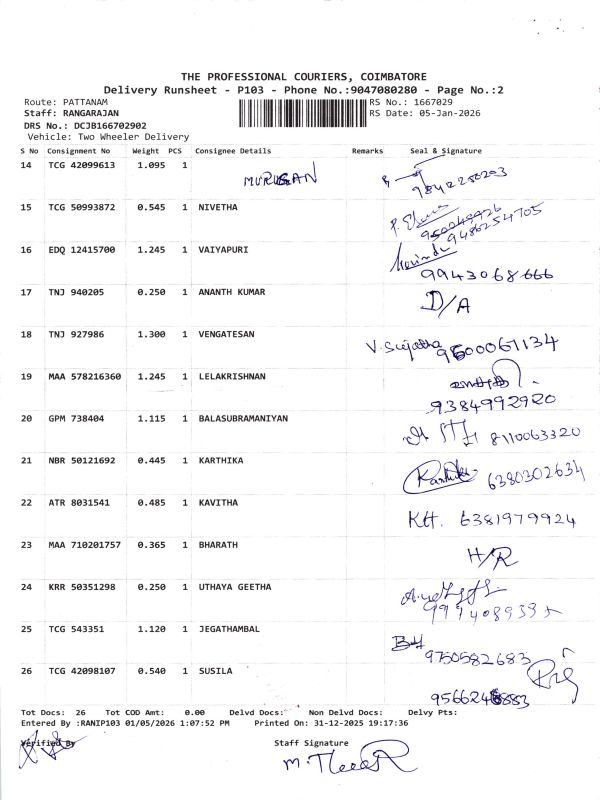 THE PROFESSIONAL COURIERS, COIMBATORE
Delivery Runsheet - P103 - Phone No.:9047080280 - Page No.:2
Route: PATTANAM
RS No.: 1667029
Staff: RANGARAJAN
RS Date: 05-Jan-2026
DRS No.: DCJB166702902
Vehicle: Two Wheeler Delivery
S No Consignment No Weight PCS Consignee Details Remarks Seal & Signature
14 TCG 42099613 1.095 1 MURUGAN 9842250203
15 TCG 50993872 0.545 1 NIVETHA
9486254705
16 EDQ 12415700 1.245 1 VAIYAPURI
9943068666
17 TNJ 940205 0.250 1 ANANTH KUMAR D/A
18 TNJ 927986 1.300 1 VENGATESAN V. Sujatha 9500061134
19 MAA 578216360 1.245 1 LELAKRISHNAN
9384992920
20 GPM 738404 1.115 1 BALASUBRAMANIYAN 8110063320
21 NBR 50121692 0.445 1 KARTHIKA Karthika 6380302634
22 ATR 8031541 0.485 1 KAVITHA 6381979924
23 MAA 710201757 0.365 1 BHARATH H/R
24 KRR 50351298 0.250 1 UTHAYA GEETHA
25 TCG 543351 1.120 1 JEGATHAMBAL
9750582683
26 TCG 42098107 0.540 1 SUSILA
Tot Docs: 26 Tot COD Amt: 0.00 Delvd Docs: Non Delvd Docs: Delvy Pts:
Entered By :RANIP103 01/05/2026 1:07:52 PM Printed On: 31-12-2025 19:17:36
Verified By
Staff Signature